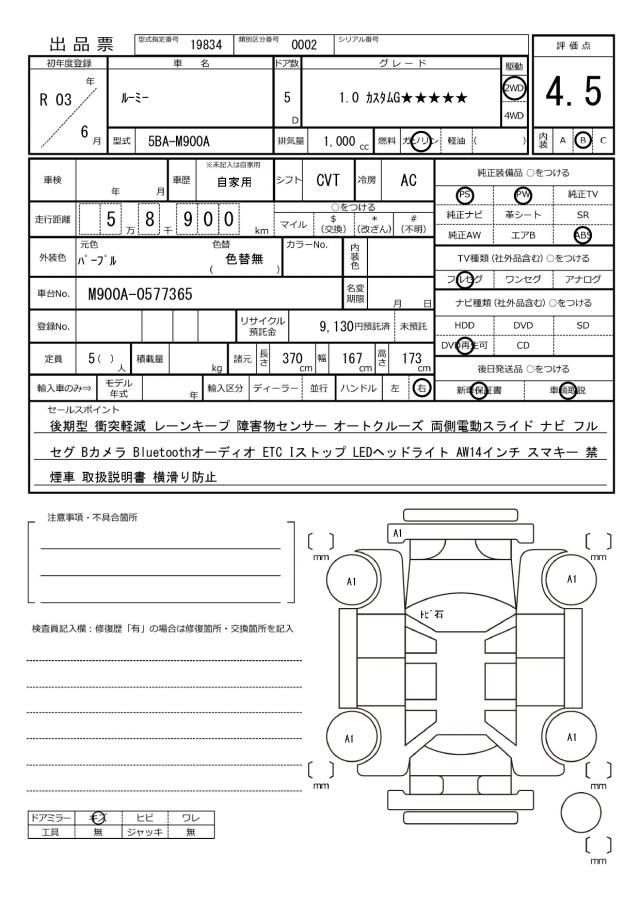 出品票
型式指定番号 19834 類別区分番号 0002 シリアル番号
評価点
4.5
内装 A B C
初年度登録 車名 ドア数 グレード 駆動
R 03 年 6 月
ルーミー
5 D
1.0 カスタムG★★★★★
2WD
4WD
型式 5BA-M900A 排気量 1,000 cc 燃料 ガソリン 軽油 ( )
車検 年 月 車歴 ※未記入は自家用 自家用 シフト CVT 冷房 AC
走行距離 5 万 8 千 900 km
○をつける
マイル $ (交換) * (改ざん) # (不明)
外装色 元色 パープル 色替 ( 色替無 ) カラーNo. 内装色
車台No. M900A-0577365 名変期限 月 日
登録No. リサイクル預託金 9,130円預託済 未預託
定員 5( ) 人 積載量 kg 諸元 長さ 370 cm 幅 167 cm 高さ 173 cm
輸入車のみ⇒ モデル年式 年 輸入区分 ディーラー 並行 ハンドル 左 右
純正装備品 ○をつける
PS PW 純正TV
純正ナビ 革シート SR
純正AW エアB ABS
TV種類(社外品含む) ○をつける
フルセグ ワンセグ アナログ
ナビ種類(社外品含む) ○をつける
HDD DVD SD
DVD再生可 CD
後日発送品 ○をつける
新車保証書 車輌取説
セールスポイント
後期型 衝突軽減 レーンキープ 障害物センサー オートクルーズ 両側電動スライド ナビ フル
セグ Bカメラ Bluetoothオーディオ ETC Iストップ LEDヘッドライト AW14インチ スマキー 禁
煙車 取扱説明書 横滑り防止
注意事項・不具合箇所
検査員記入欄：修復歴「有」の場合は修復箇所・交換箇所を記入
A1
[ ] mm
[ ] mm
A1
A1
トビ石
A1
A1
[ ] mm
[ ] mm
[ ] mm
ドアミラー キズ ヒビ ワレ
工具 無 ジャッキ 無